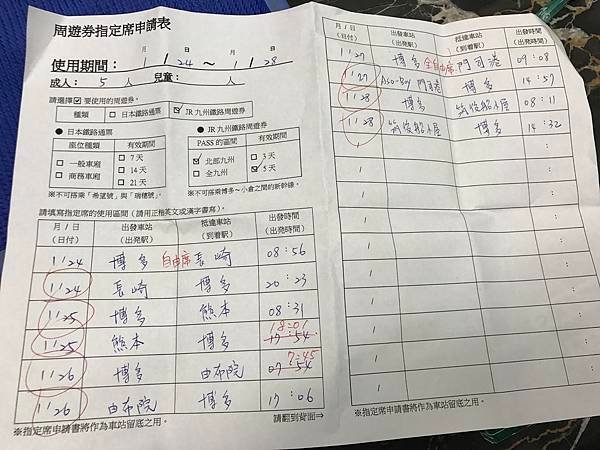 周遊券指定席申請表
月 日 月 日
使用期間： 1 / 24 ～ 1 / 28
成人： 5 人 兒童： 人
請選擇☑要使用的周遊券。
種類 □ 日本鐵路通票 ☑ JR 九州鐵路周遊券
● 日本鐵路通票 ● JR 九州鐵路周遊券
座位種類 有效期間 PASS 的區間 有效期間
□ 一般車廂 □ 7 天 ☑ 北部九州 □ 3 天
□ 商務車廂 □ 14 天 □ 全九州 ☑ 5 天
□ 21 天
※不可搭乘「希望號」與「瑞穗號」 ※不可搭乘博多～小倉之間的新幹線。
請填寫指定席的使用區間（請用正楷英文或漢字書寫）。
月 / 日 出發車站 抵達車站 出發時間
（日付） （出発駅） （到着駅） （出発時間）
1 / 24 博多 自由席 長崎 08：56
1 / 24 長崎 博多 20：23
1 / 25 博多 熊本 08：31
1 / 25 熊本 博多 18：01 17：54
1 / 26 博多 由布院 7：45 07：54
1 / 26 由布院 博多 17：06
※指定席申請書將作為車站留底之用。 請翻到背面⇒
月 / 日 出發車站 抵達車站 出發時間
（日付） （出発駅） （到着駅） （出発時間）
1 / 27 博多 全自由席 門司港 09：08
1 / 27 Aso-Boy 門司港 博多 14：57
1 / 28 博多 筑後船小屋 08：11
1 / 28 筑後船小屋 博多 14：32
/ ：
/ ：
/ ：
/ ：
/ ：
/ ：
/ ：
/ ：
※指定席申請書將作為車站留底之用。